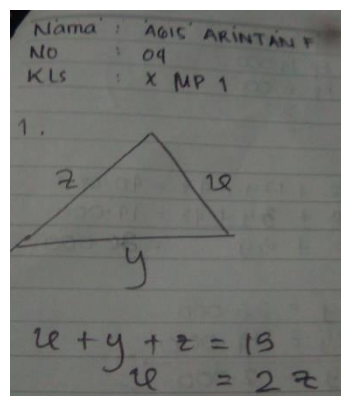 Nama : AGIS ARINTAN F
NO : 04
KLS : X MP 1
1.
z x
y
x + y + z = 15
x = 2 z